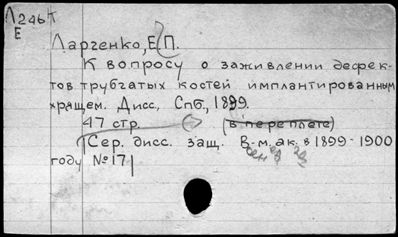 Л246к
Е
Ларгенко, Е.П.
К вопросу о заживлении дефек-
тов трубчатых костей имплантированным
хрящем. Дисс., Спб., 1899.
47 стр. (в переплете)
[Сер. дисс. защ. В.-м. ак. в 1899-1900
году № 17]